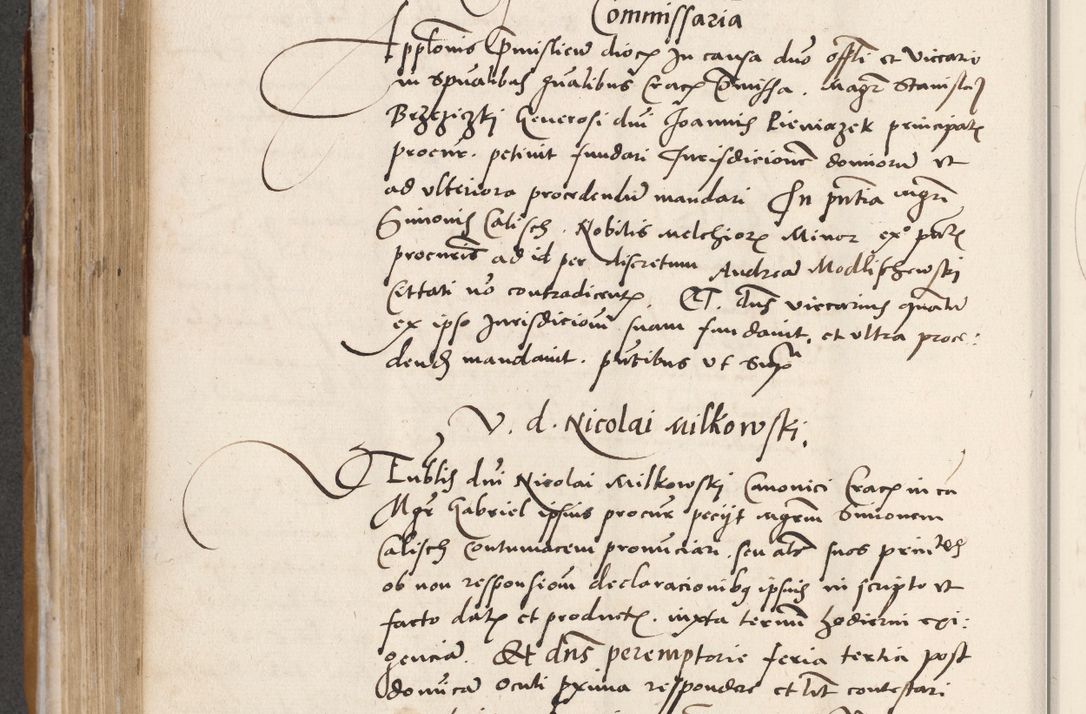 Commissaria
Applonis Premislien dioc In causa duo offli et Viccario
in Spualibus gnalibus Crac Premissa. Magr Stanisl
Brzezizki Generosi dni Joannis Pieniazek principal
procur. petivit fundari Jurisdicione dominorum et
ad ulteriora procedendum mandari In pntia mgri
Simonis Calisch. Nobilis Melchior Minor ex° part
procuris ad id per discretum Andrea Modlischewski
Cittati no contradicent. Et dns viccarius quantum
ex ipso Jurisdiciom suam fundavit, et ultra proce:
dend mandavit. pntibus ut Sup
V. d. Nicolai Milkowski.
Venblis dni Nicolai Milkowski Canonici Crac in ca
Mgr Gabriel ipsius procur pecijt mgrm Simonem
Calisch Contumacem pronunciari, seu
ob non responsiom declaracionibq ipsius in scripto et
facto dat et product. iuxta termm hodierni exi:
genciam. Et dns peremptorie feria tertia post
donicam Oculi prima respondere et lit contestari